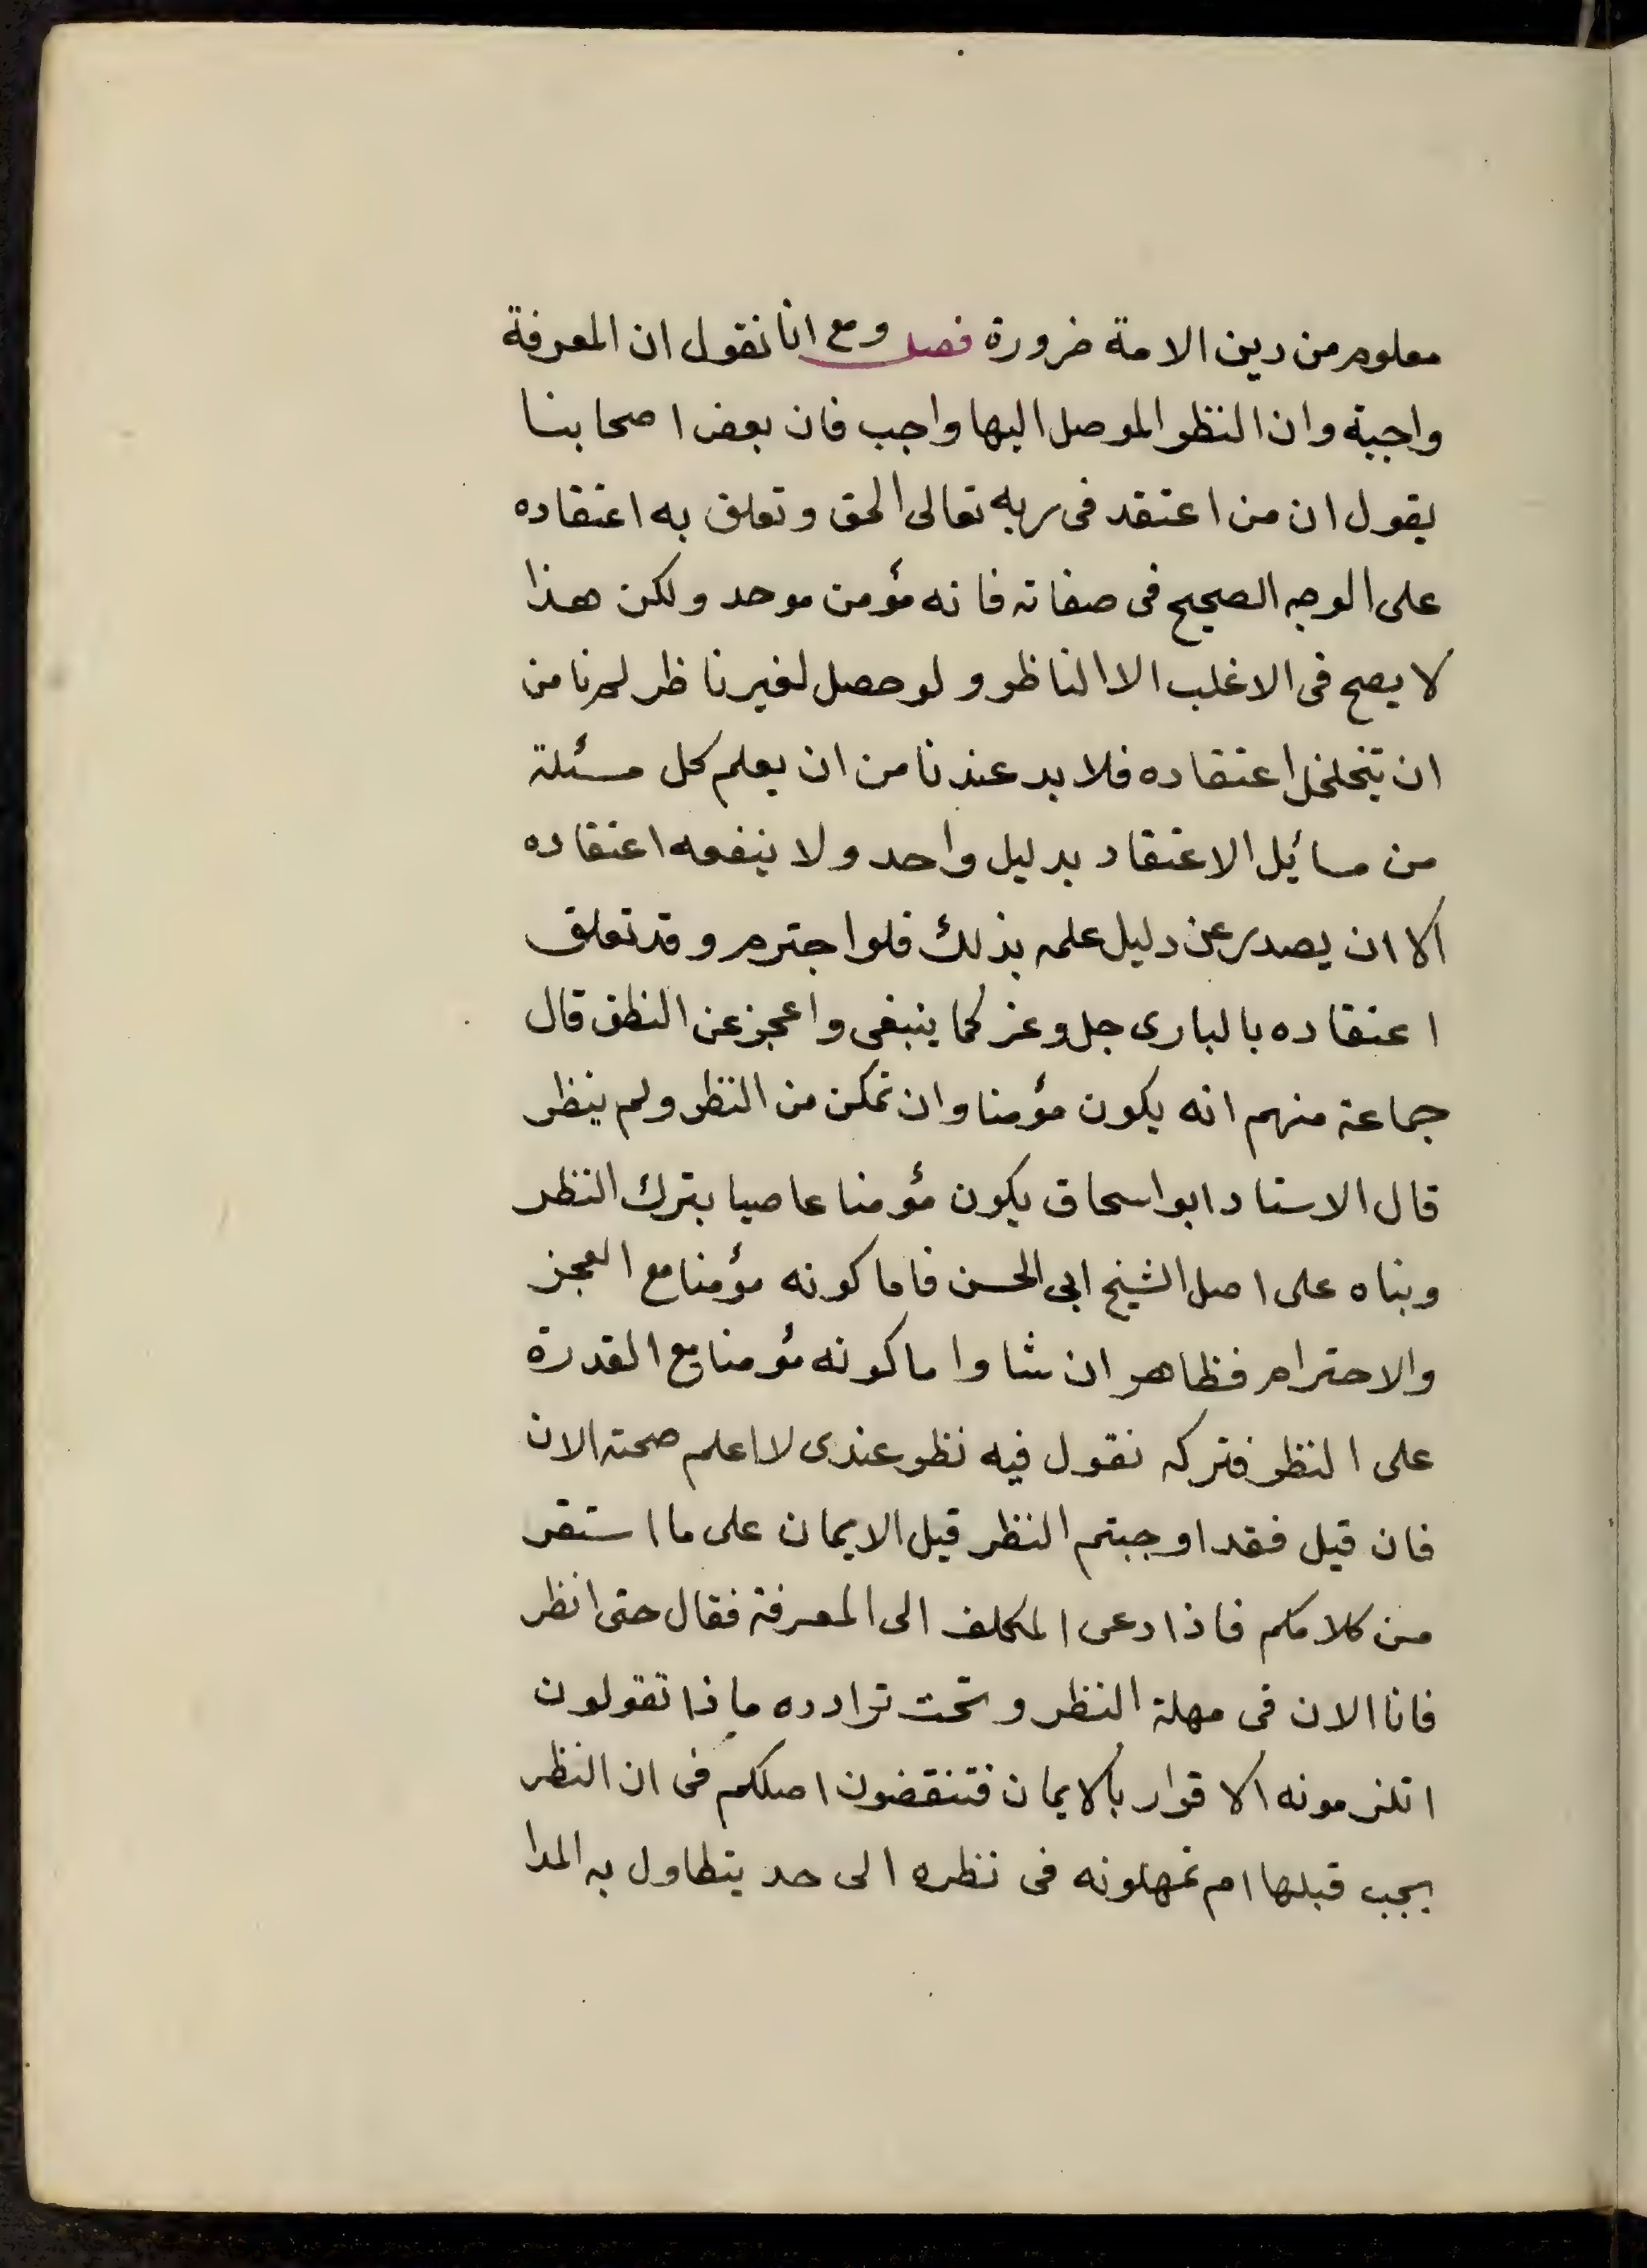 معلوم من دين الامة ضرورة فصل ومع انا نقول ان المعرفة
واجبة وان النظر الموصل اليها واجب فان بعض اصحابنا
يقول ان من اعتقد فى ربه تعالى الحق وتعلق به اعتقاده
على الوجه الصحيح فى صفاته فانه مؤمن موحد ولكن هذا
لا يصح فى الاغلب الا الناظر ولو حصل لغير ناظر لم نامن
ان يتخلخل اعتقاده فلا بد عندنا من ان يعلم كل مسئلة
من مسائل الاعتقاد بدليل واحد ولا ينفعه اعتقاده
الا ان يصدر عن دليل علمه بذلك فلو اجترم وقد تعلق
اعتقاده بالبارى جل وعز كما ينبغى واعجز عن النظر قال
جماعة منهم انه يكون مؤمنا وان تمكن من النظر ولم ينظر
قال الاستاد ابو اسحاق يكون مؤمنا عاصيا بترك النظر
وبناه على اصل الشيخ ابى الحسن فاما كونه مؤمنا مع العجز
والاحترام فظاهر ان شا واما كونه مؤمنا مع القدرة
على النظر فتركه نقول فيه نظر عندى لا اعلم صحته الان
فان قيل فقد اوجبتم النظر قبل الايمان على ما استقر
من كلامكم فاذا دعى المكلف الى المعرفة فقال حتى انظر
فانا الان فى مهلة النظر وتحت تراده ماذا تقولون
اتلزمونه الاقرار بالايمان فتنقضون اصلكم فى ان النظر
يجب قبلها ام تمهلونه فى نظره الى حد يتطاول به المدا